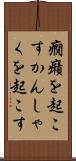 癇癪を起こ
すかんしゃ
くを起こす